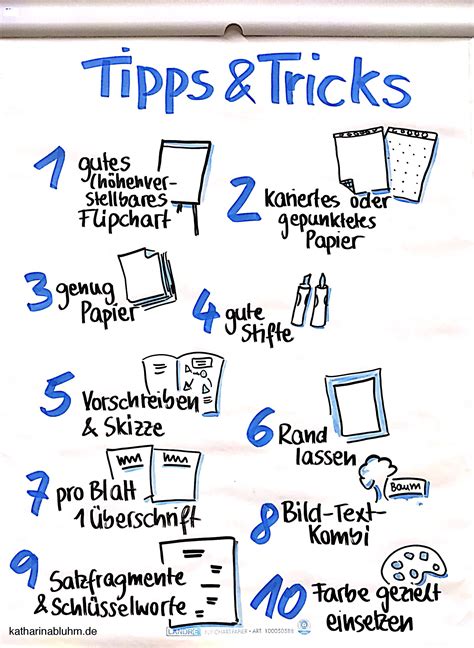 Tipps & Tricks
1 gutes
(höhenver-
stellbares
Flipchart
2 kariertes oder
gepunktetes
Papier
3 genug
Papier
4 gute
Stifte
5 Vorschreiben
& Skizze
6 Rand
lassen
7 pro Blatt
1 Überschrift
8 Bild-Text-
Kombi
Baum
9 Satzfragmente
& Schlüsselworte
10 Farbe gezielt
einsetzen
katharinabluhm.de